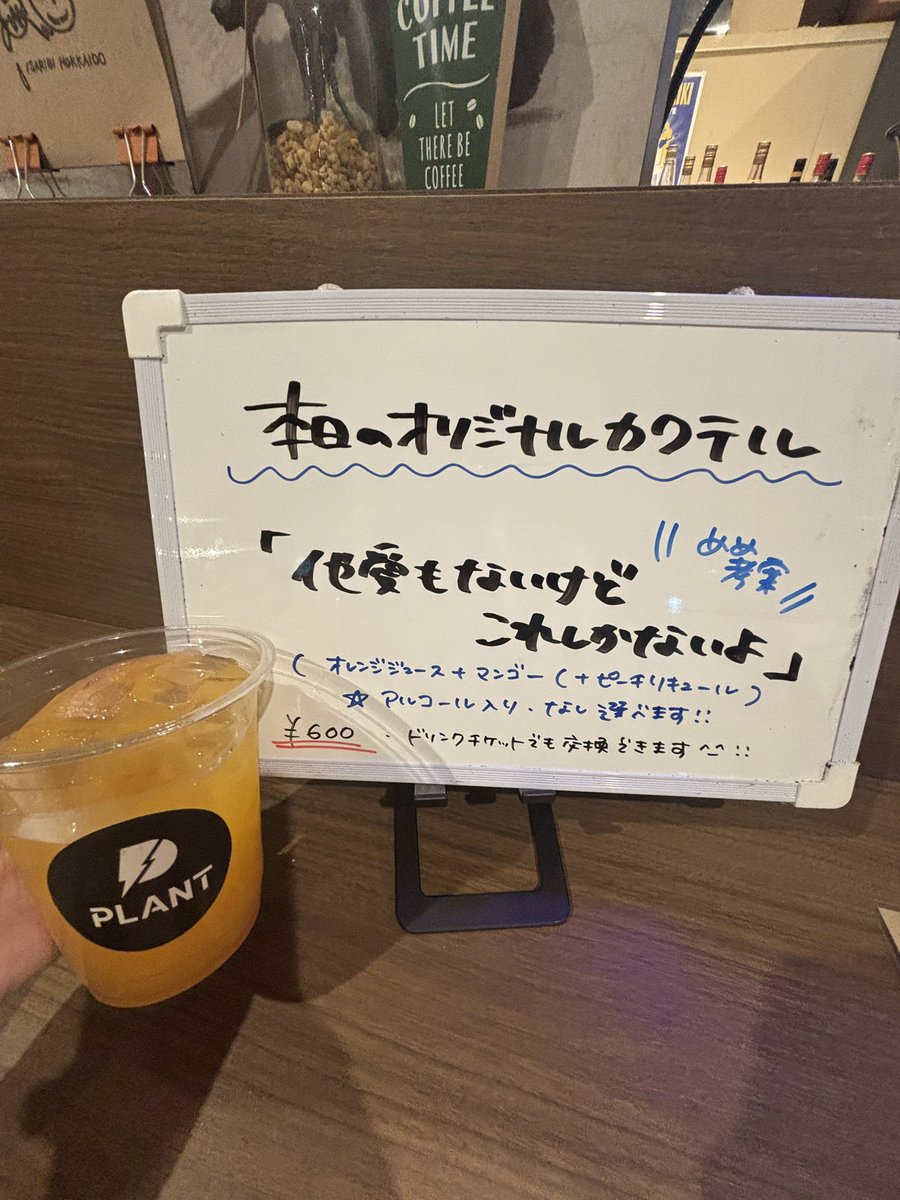 ISARIBI HOKKAIDO
COFFEE
TIME
LET
THERE BE
COFFEE
本日のオリジナルカクテル
「他愛もないけど
これしかないよ」
めめ
考案
( オレンジジュース + マンゴー ( + ピーチリキュール )
☆ アルコール入り・なし選べます!!
¥600 ・ドリンクチケットでも交換できます^_^!!
PLANT